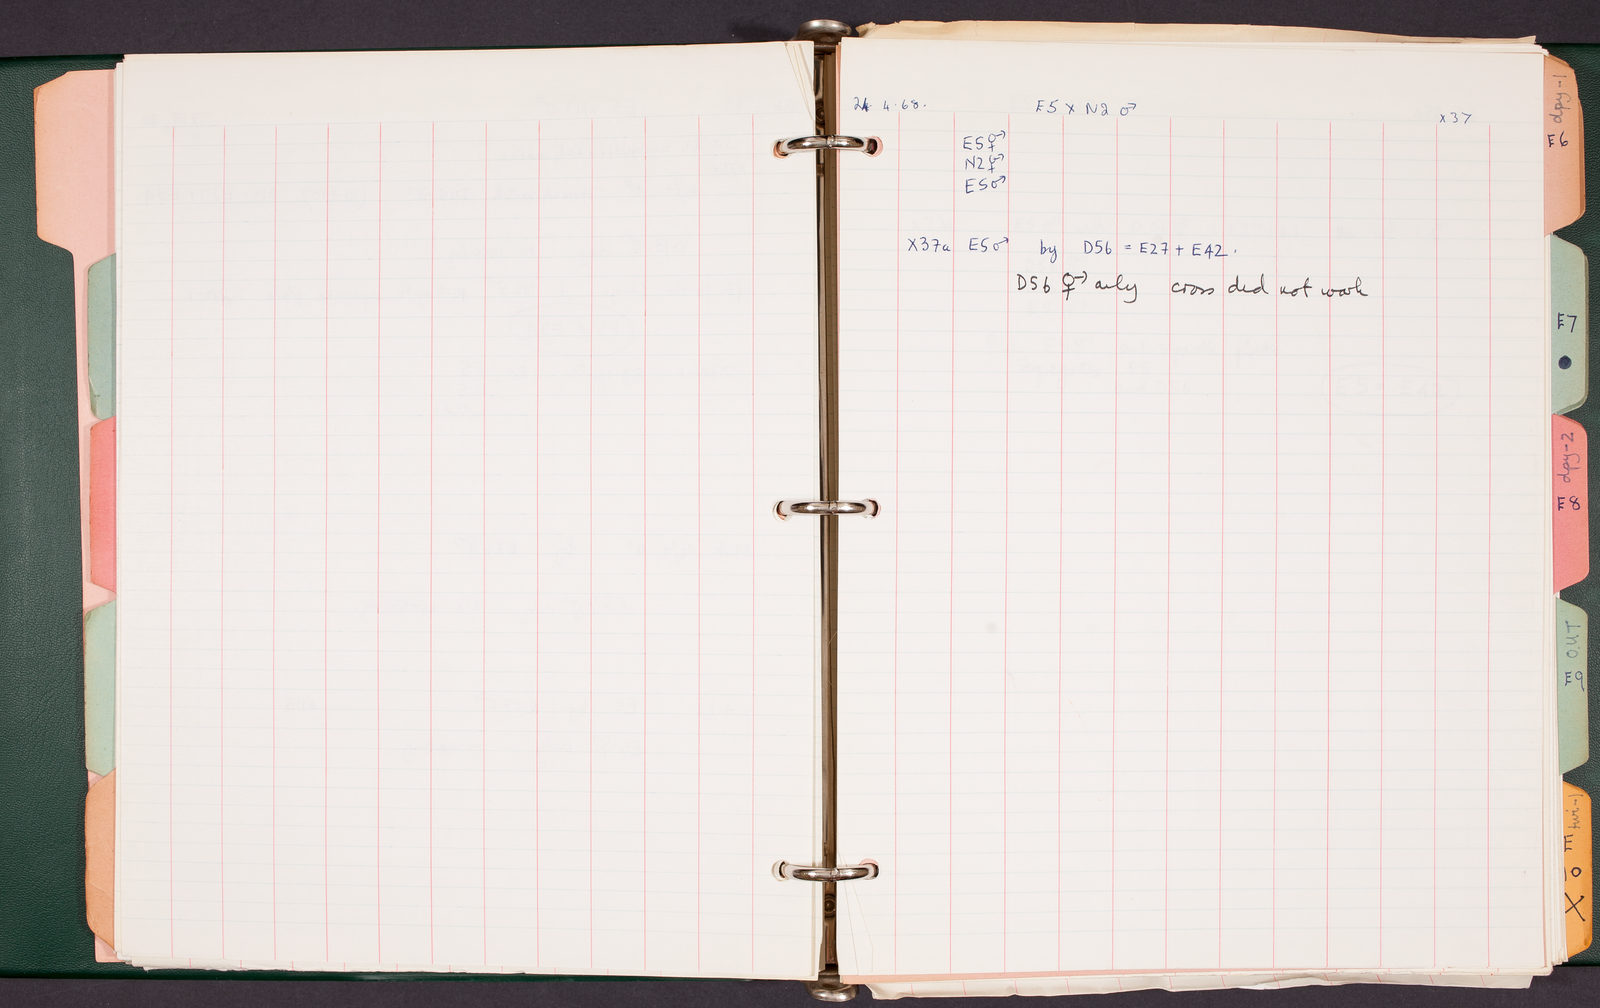 24.4.68.
E5 x N2 ♂
x37
E5 ⚥
N2 ⚥
E5 ♂
X37a E5 ♂ by D56 = E27 + E42.
D56 ⚥ only cross did not work
dpy-1
E6
E7
dpy-2
E8
OUT
E9
E
10
X